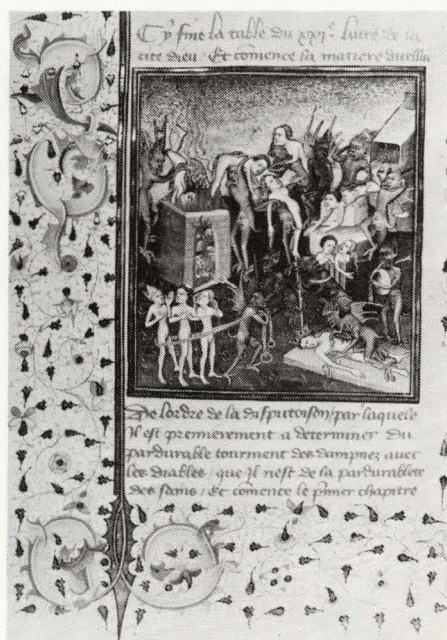 Cy fine la table du xxi.e liure de la
cite dieu / Et comence la matiere
De lordre de la disputoison / par laquele
Il est premierement a determiner du
pardurable tourment des dampnez auec
les diables / que Il nest de la pardurablete
des sains / Et comence le p̃mier chapitre